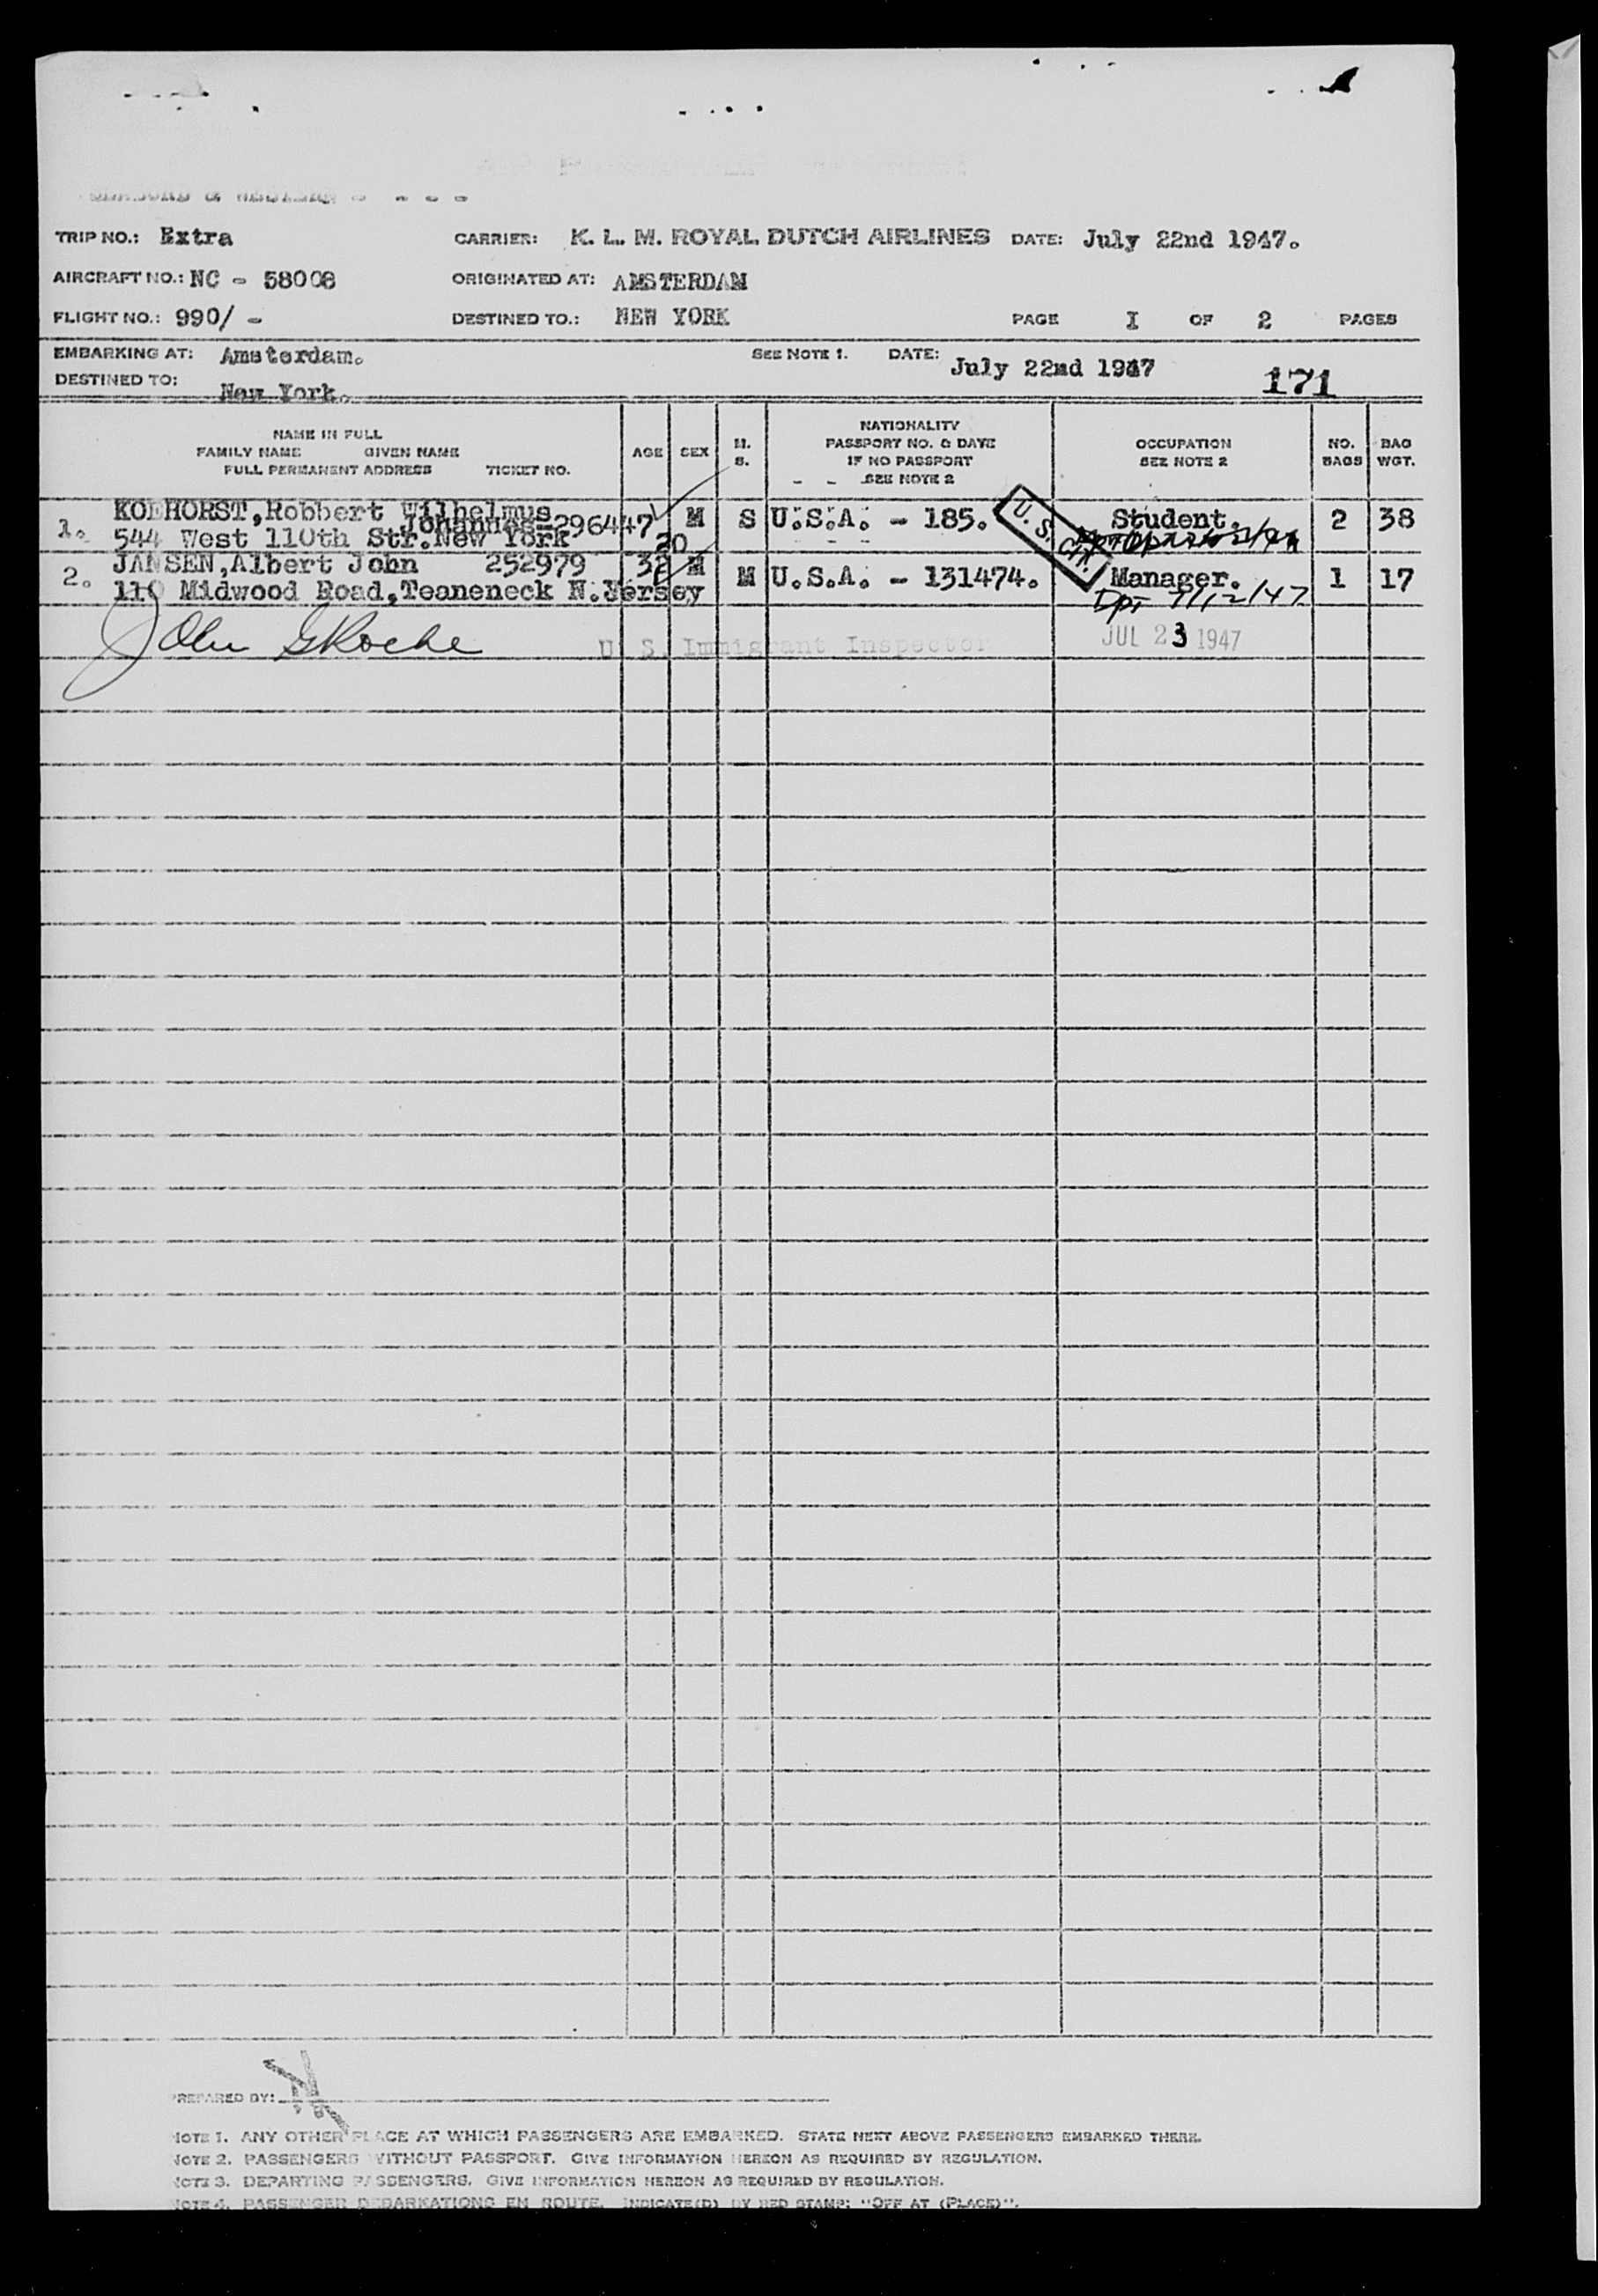 TRIP NO.: Extra CARRIER: K. L. M. ROYAL DUTCH AIRLINES DATE: July 22nd 1947.
AIRCRAFT NO.: NC - 58008 ORIGINATED AT: AMSTERDAM
FLIGHT NO.: 990/ - DESTINED TO.: NEW YORK PAGE I OF 2 PAGES
EMBARKING AT: Amsterdam. SEE NOTE 1. DATE: July 22nd 1947
DESTINED TO: New York. 171
NAME IN FULL
FAMILY NAME GIVEN NAME
FULL PERMANENT ADDRESS TICKET NO.
AGE
SEX
M.
S.
NATIONALITY
PASSPORT NO. & DATE
IF NO PASSPORT
SEE NOTE 2
OCCUPATION
SEE NOTE 2
NO.
BAGS
BAG
WGT.
1. KOEHORST, Robbert Wilhelmus
Johannes-296447 20 M S U.S.A. - 185. Student. 2 38
544 West 110th Str. New York
U. S. CIT.
2. JANSEN, Albert John 252979 32 M M U.S.A. - 131474. Manager. 1 17
110 Midwood Road, Teaneneck N. Jersey
Dpt 7/12/47
John G Roche U. S. Immigrant Inspector JUL 23 1947
PREPARED BY:
NOTE 1. ANY OTHER PLACE AT WHICH PASSENGERS ARE EMBARKED. STATE NEXT ABOVE PASSENGERS EMBARKED THERE.
NOTE 2. PASSENGERS WITHOUT PASSPORT. GIVE INFORMATION HEREON AS REQUIRED BY REGULATION.
NOTE 3. DEPARTING PASSENGERS. GIVE INFORMATION HEREON AS REQUIRED BY REGULATION.
NOTE 4. PASSENGER DEBARKATIONS EN ROUTE. INDICATE(D) BY RED STAMP: "OFF AT (PLACE)".